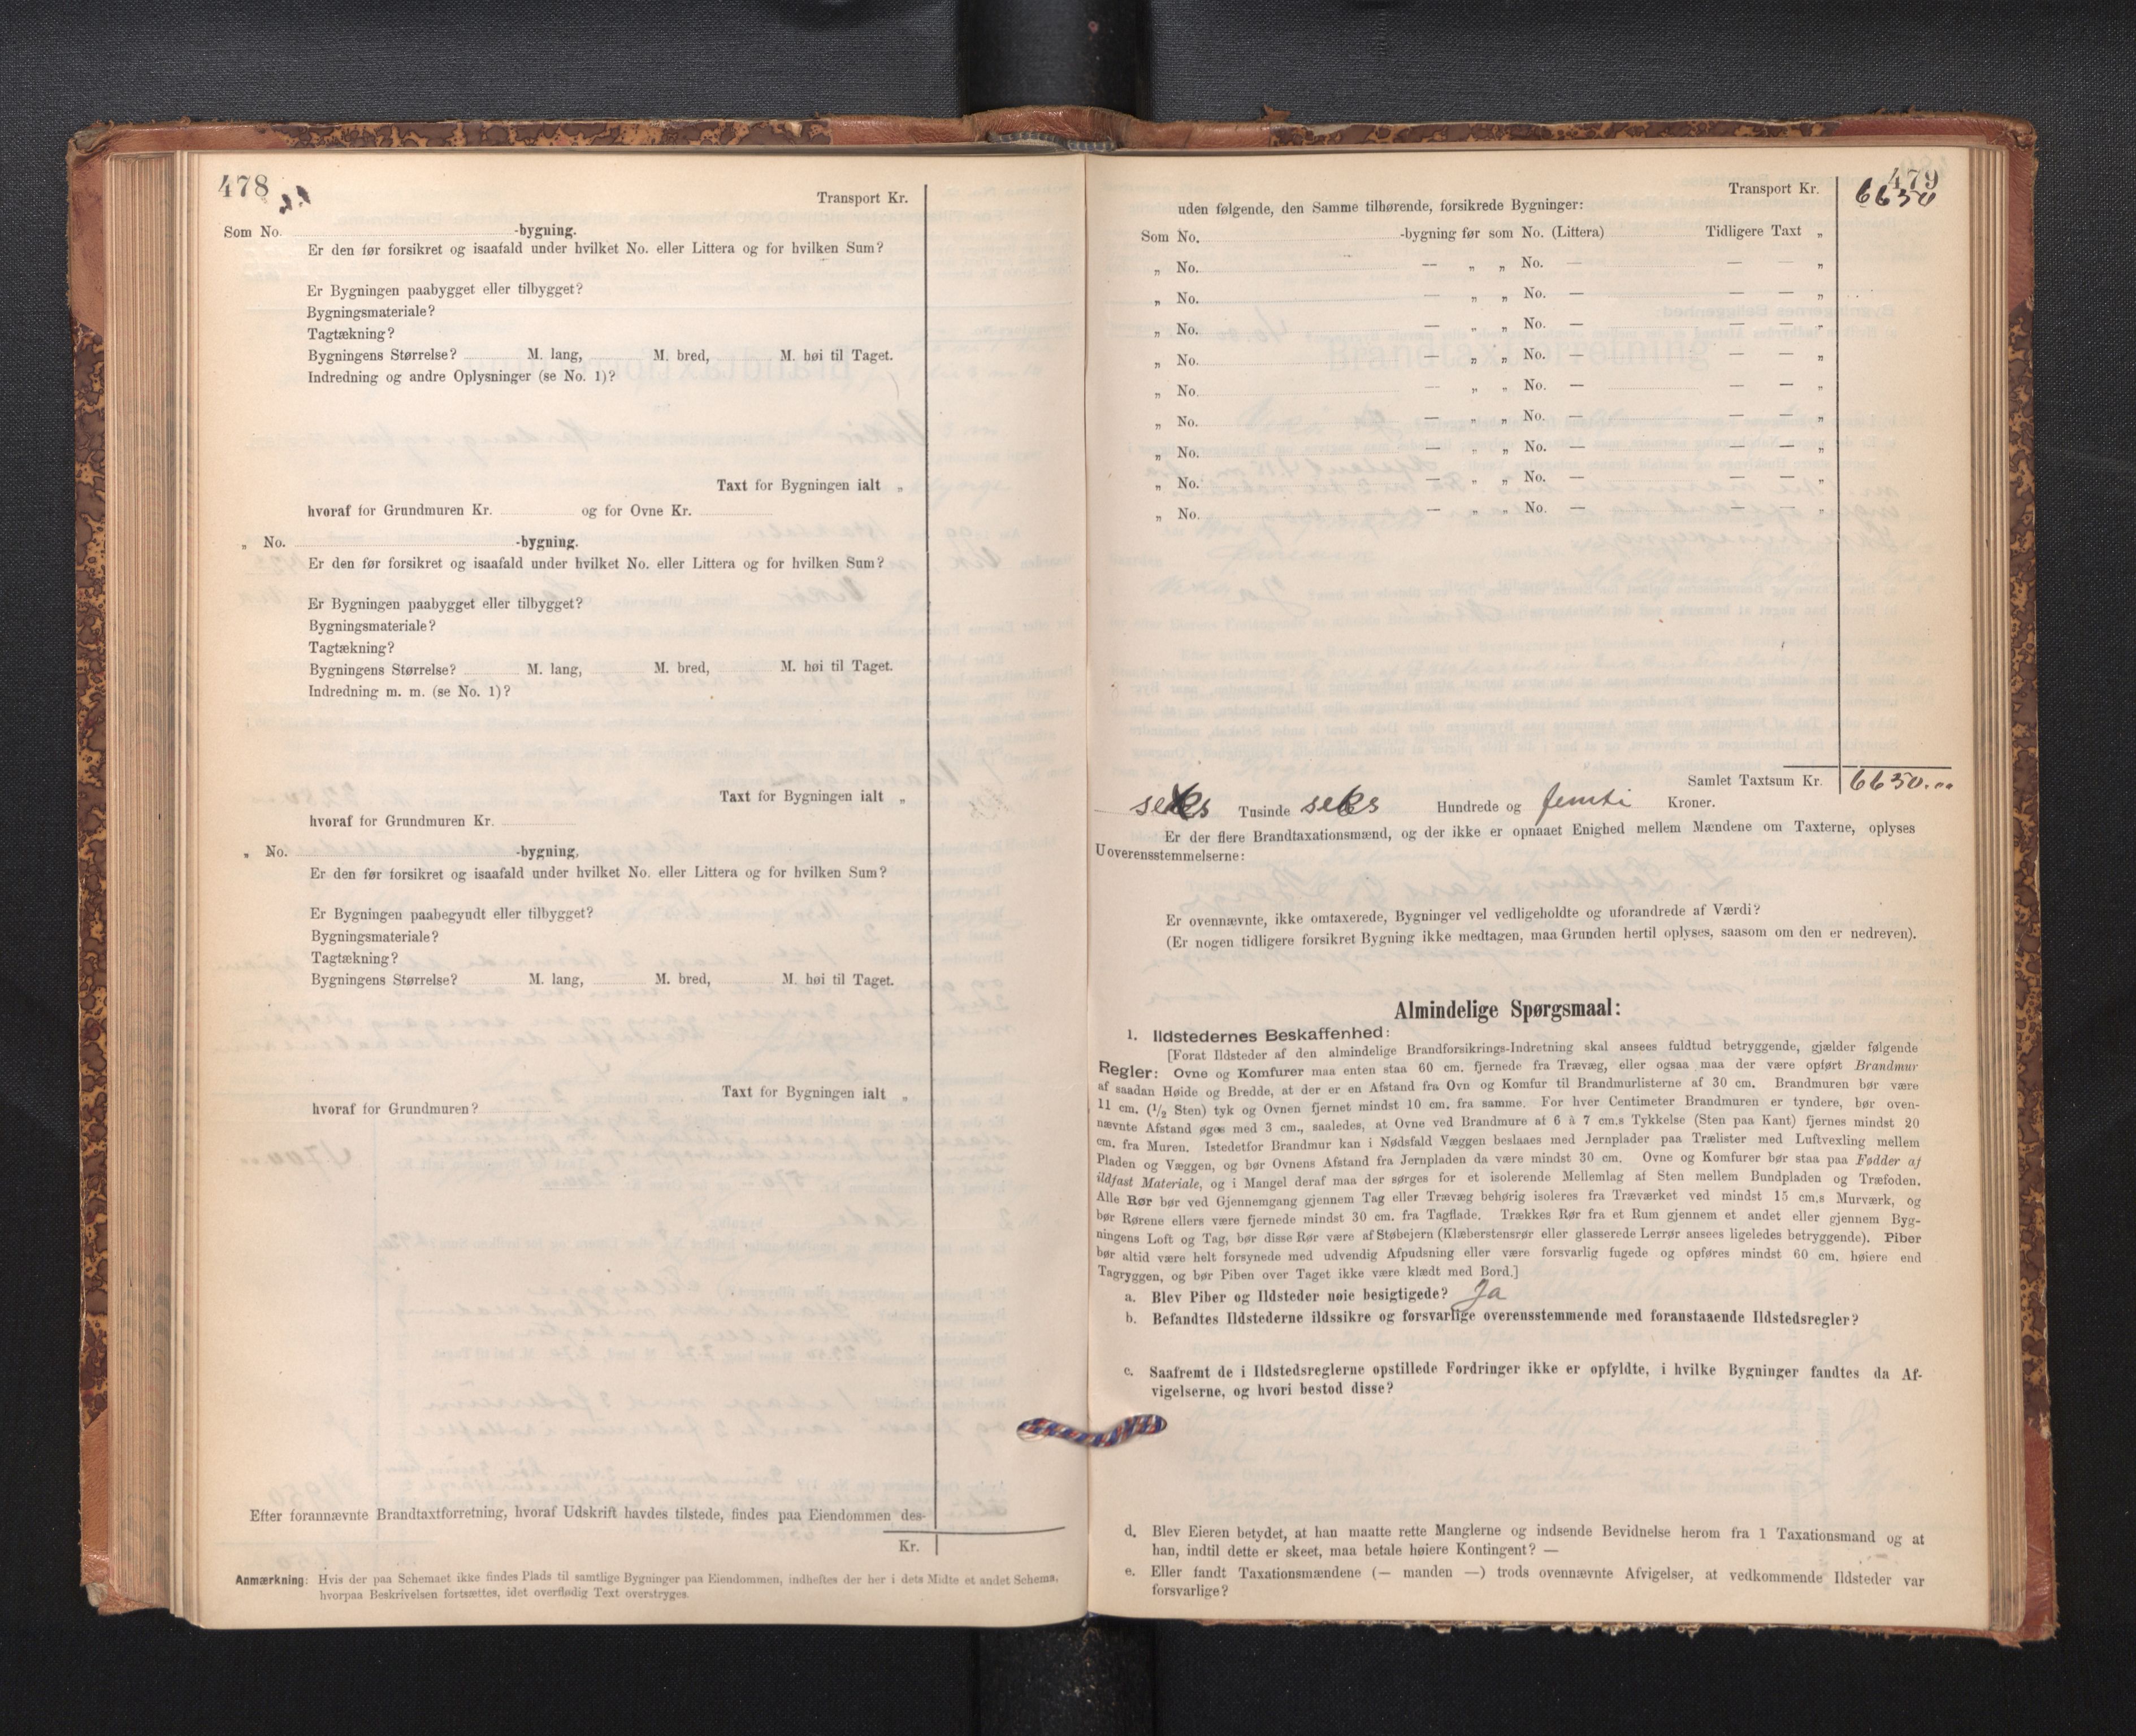 478
Transport Kr.
Som No. -bygning.
Er den før forsikret og isaafald under hvilket No. eller Littera og for hvilken Sum?
Er Bygningen paabygget eller tilbygget?
Bygningsmateriale?
Tagtækning?
Bygningens Størrelse? M. lang, M. bred, M. høi til Taget.
Indredning og andre Oplysninger (se No. 1)?
Taxt for Bygningen ialt „
hvoraf for Grundmuren Kr. og for Ovne Kr.
„ No. -bygning.
Er den før forsikret og isaafald under hvilket No. eller Littera og for hvilken Sum?
Er Bygningen paabygget eller tilbygget?
Bygningsmateriale?
Tagtækning?
Bygningens Størrelse? M. lang, M. bred, M. høi til Taget.
Indredning m. m. (se No. 1)?
Taxt for Bygningen ialt „
hvoraf for Grundmuren Kr.
„ No. -bygning,
Er den før forsikret og isaafald under hvilket No. eller Littera og for hvilken Sum?
Er Bygningen paabegyndt eller tilbygget?
Bygningsmateriale?
Tagtækning?
Bygningens Størrelse? M. lang, M. bred, M. høi til Taget.
Taxt for Bygningen ialt „
hvoraf for Grundmuren?
Efter forannævnte Brandtaxtforretning, hvoraf Udskrift havdes tilstede, findes paa Eiendommen des-
Kr.
Anmærkning: Hvis der paa Schemaet ikke findes Plads til samtlige Bygninger paa Eiendommen, indheftes der her i dets Midte et andet Schema,
hvorpaa Beskrivelsen fortsættes, idet overflødig Text overstryges.
479
Transport Kr. 6650
uden følgende, den Samme tilhørende, forsikrede Bygninger:
Som No. -bygning før som No. (Littera) Tidligere Taxt „
„ No. — „ „ No. — — — „
„ No. — „ „ No. — — — „
„ No. — „ „ No. — — — „
„ No. — „ „ No. — — — „
„ No. — „ „ No. — — — „
„ No. — „ „ No. — — — „
„ No. — „ „ No. — — — „
„ No. — „ „ No. — — — „
„ No. — „ „ No. — — — „
Samlet Taxtsum Kr. 6650.„
seks Tusinde seks Hundrede og femti Kroner.
Er der flere Brandtaxationsmænd, og der ikke er opnaaet Enighed mellem Mændene om Taxterne, oplyses
Uoverensstemmelserne:
Er ovennævnte, ikke omtaxerede, Bygninger vel vedligeholdte og uforandrede af Værdi?
(Er nogen tidligere forsikret Bygning ikke medtagen, maa Grunden hertil oplyses, saasom om den er nedreven).
Almindelige Spørgsmaal:
1. Ildstedernes Beskaffenhed:
[Forat Ildsteder af den almindelige Brandforsikrings-Indretning skal ansees fuldtud betryggende, gjælder følgende
Regler: Ovne og Komfurer maa enten staa 60 cm. fjernede fra Trævæg, eller ogsaa maa der være opført Brandmur
af saadan Høide og Bredde, at der er en Afstand fra Ovn og Komfur til Brandmurlisterne af 30 cm. Brandmuren bør være
11 cm. (1/2 Sten) tyk og Ovnen fjernet mindst 10 cm. fra samme. For hver Centimeter Brandmuren er tyndere, bør oven-
nævnte Afstand øges med 3 cm., saaledes, at Ovne ved Brandmure af 6 à 7 cm.s Tykkelse (Sten paa Kant) fjernes mindst 20
cm. fra Muren. Istedetfor Brandmur kan i Nødsfald Væggen beslaaes med Jernplader paa Trælister med Luftvexling mellem
Pladen og Væggen, og bør Ovnens Afstand fra Jernpladen da være mindst 30 cm. Ovne og Komfurer bør staa paa Fødder af
ildfast Materiale, og i Mangel deraf maa der sørges for et isolerende Mellemlag af Sten mellem Bundpladen og Træfoden.
Alle Rør bør ved Gjennemgang gjennem Tag eller Trævæg behørig isoleres fra Træværket ved mindst 15 cm.s Murværk, og
bør Rørene ellers være fjernede mindst 30 cm. fra Tagflade. Trækkes Rør fra et Rum gjennem et andet eller gjennem Byg-
ningens Loft og Tag, bør disse Rør være af Støbejern (Klæberstensrør eller glasserede Lerrør ansees ligeledes betryggende). Piber
bør altid være helt forsynede med udvendig Afpudsning eller være forsvarlig fugede og opføres mindst 60 cm. høiere end
Tagryggen, og bør Piben over Taget ikke være klædt med Bord.]
a. Blev Piber og Ildsteder nøie besigtigede? Ja
b. Befandtes Ildstederne ildssikre og forsvarlige overensstemmende med foranstaaende Ildstedsregler?
c. Saafremt de i Ildstedsreglerne opstillede Fordringer ikke er opfyldte, i hvilke Bygninger fandtes da Af-
vigelserne, og hvori bestod disse?
d. Blev Eieren betydet, at han maatte rette Manglerne og indsende Bevidnelse herom fra 1 Taxationsmand og at
han, indtil dette er skeet, maa betale høiere Kontingent? —
e. Eller fandt Taxationsmændene (— manden —) trods ovennævnte Afvigelser, at vedkommende Ildsteder var
forsvarlige?